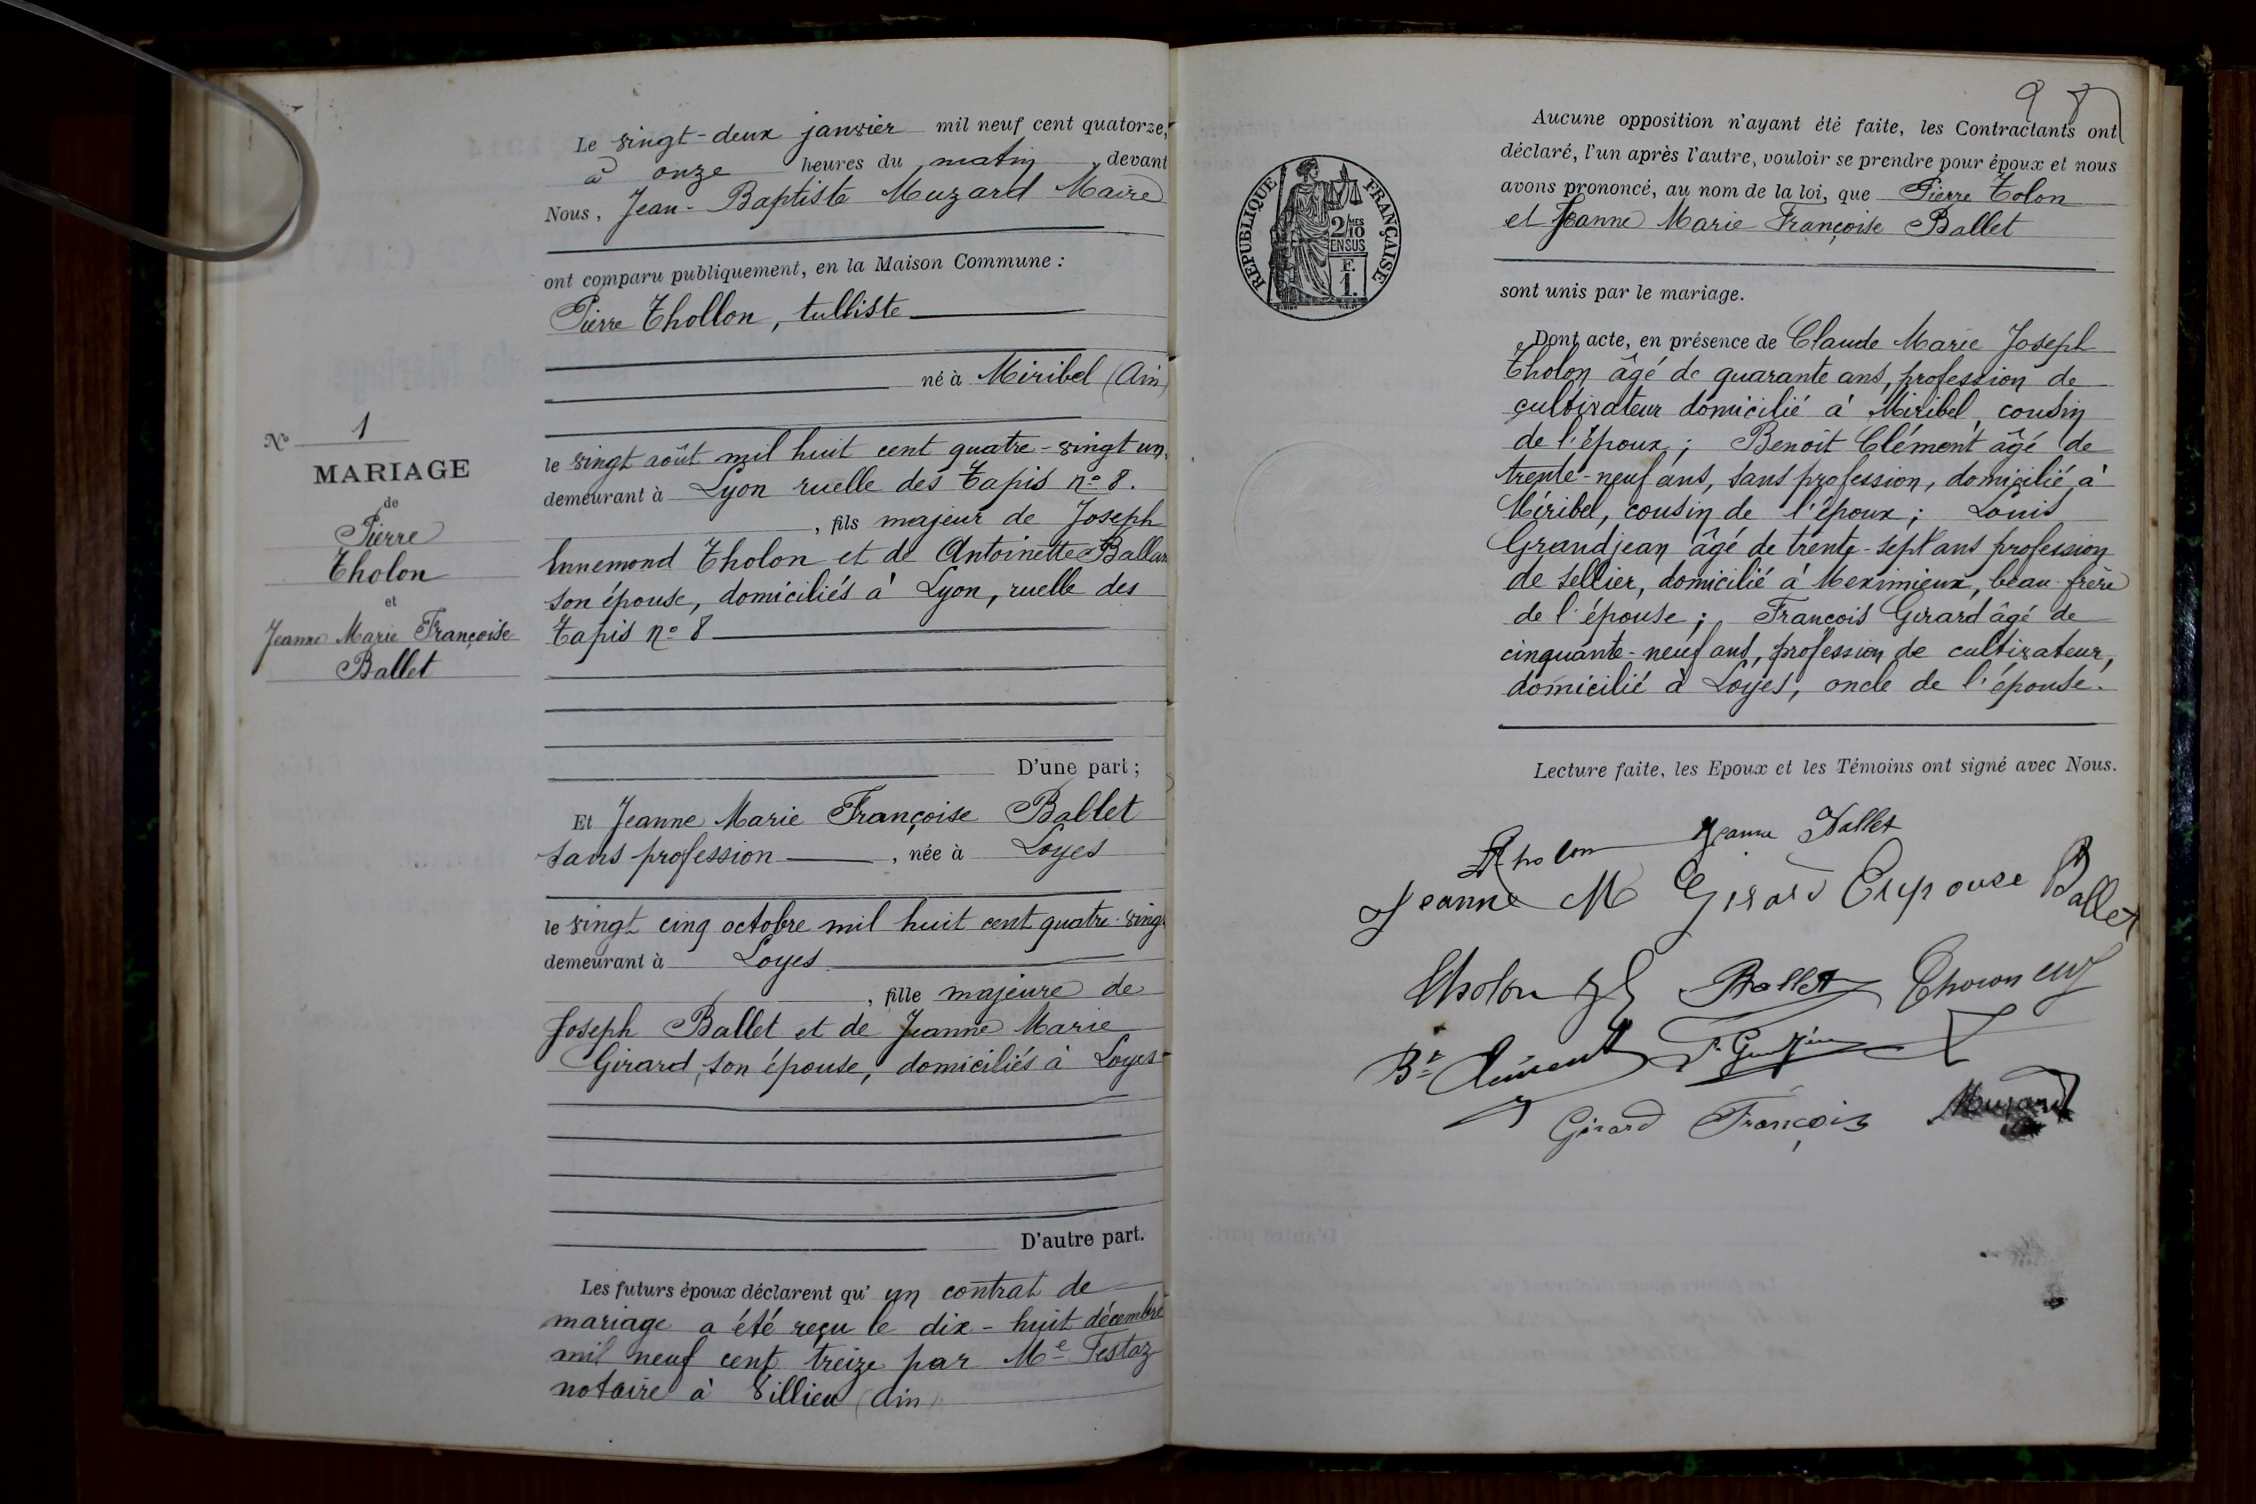 Le vingt-deux janvier mil neuf cent quatorze,
à onze heures du matin devant
Nous, Jean-Baptiste Muzard Maire
ont comparu publiquement, en la Maison Commune :
Pierre Thollon, tulliste
né à Miribel (Ain)
le vingt août mil huit cent quatre-vingt un,
demeurant à Lyon ruelle des Tapis nº 8.
, fils majeur de Joseph
Ennemond Tholon et de Antoinette
son épouse, domiciliés à Lyon, ruelle des
Tapis nº 8
D'une part ;
Et Jeanne Marie Françoise Ballet
sans profession , née à Loyes
le vingt cinq octobre mil huit cent quatre-vingt
demeurant à Loyes
, fille majeure de
Joseph Ballet et de Jeanne Marie
Girard, son épouse, domiciliés à Loyes
D'autre part.
Les futurs époux déclarent qu' un contrat de
mariage a été reçu le dix-huit décembre
mil neuf cent treize par Me Festaz
notaire à Villieu (Ain)
Nº 1
MARIAGE
de
Pierre
Tholon
et
Jeanne Marie Françoise
Ballet
RÉPUBLIQUE FRANÇAISE
2/10MES
EN SUS
F.
1.
Aucune opposition n'ayant été faite, les Contractants ont
déclaré, l'un après l'autre, vouloir se prendre pour époux et nous
avons prononcé, au nom de la loi, que Pierre Tolon
et Jeanne Marie Françoise Ballet
sont unis par le mariage.
Dont acte, en présence de Claude Marie Joseph
Tholon âgé de quarante ans, profession de
cultivateur domicilié à Miribel, cousin
de l'époux ; Benoit Clément âgé de
trente-neuf ans, sans profession, domicilié à
Miribel, cousin de l'époux ; Louis
Grandjean âgé de trente-sept ans profession
de sellier, domicilié à Meximieux, beau-frère
de l'épouse ; François Girard âgé de
cinquante-neuf ans, profession de cultivateur,
domicilié à Loyes, oncle de l'épouse.
Lecture faite, les Epoux et les Témoins ont signé avec Nous.
Tholon Jeanne Ballet
Jeanne M Girard Ballet
Tholon Ballet
Bt Clément
Girard François Muzard